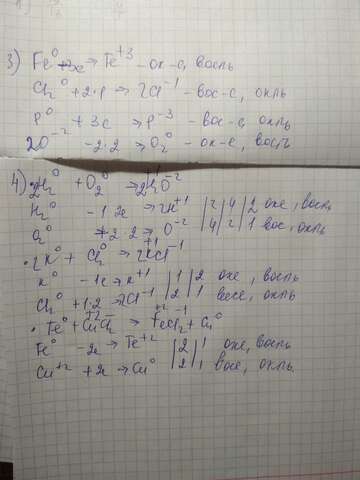 3) Fe⁰ -3e → Fe⁺³ - ок-е, восль
Cl₂⁰ + 2·1 → 2Cl⁻¹ - вос-е, окль
P⁰ + 3e → P⁻³ - вос-е, окль
2O⁻² - 2·2 → O₂⁰ - ок-е, восль
4) · 2H₂⁰ + O₂⁰ → 2H₂⁺¹O⁻²
H₂⁰ - 1·2e → 2H⁺¹ | 2 | 4 | 2 оке, восль
O₂⁰ + 2·2 → O⁻² | 4 | 2 | 1 вос, окль
· 2K⁰ + Cl₂⁰ → 2K⁺¹Cl⁻¹
K⁰ - 1e → K⁺¹ | 1 | 2 оке, восль
Cl₂⁰ + 1·2 → 2Cl⁻¹ | 2 | 1 восе, окль
· Fe⁰ + Cu⁺²Cl₂ → Fe⁺²Cl₂⁻¹ + Cu⁰
Fe⁰ - 2e → Fe⁺² | 2 | 1 оке, восль
Cu⁺² + 2e → Cu⁰ | 2 | 1 восе, окль